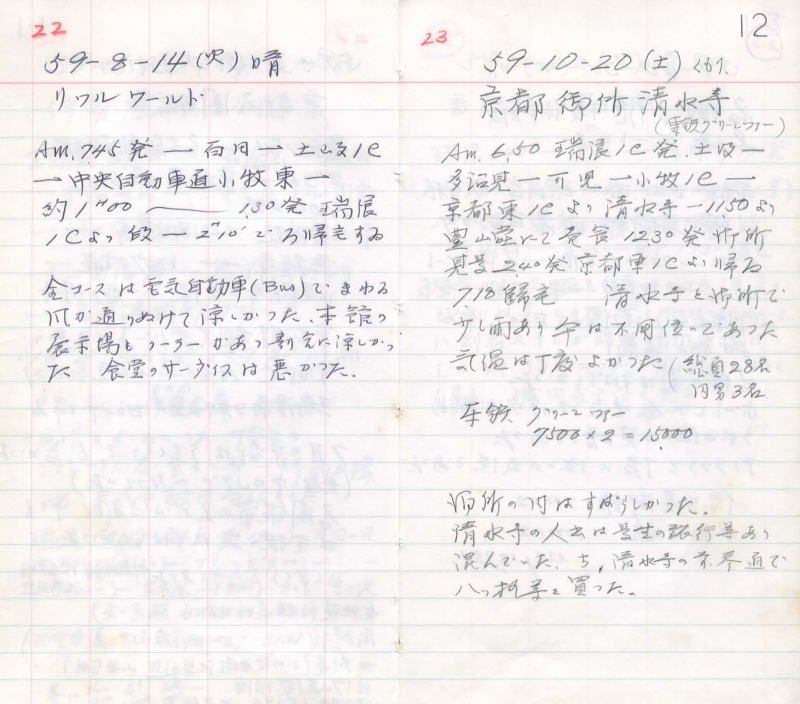 22
59-8-14(火)晴
リトルワールド
Am.745発 ー 白川 ー 土岐IC
ー 中央自動車道小牧東 ー
約1H00 ー 1.30発 瑞浪
ICより ー 2H10 帰宅する
全コースは電気自動車(Bus)でまわる
川が通りぬけて涼しかった、本館の
展示場もクーラーがあって涼しかっ
た 食堂のサーヴィスは悪かった.
23
12
59-10-20(土)くもり
京都御所 清水寺
(東鉄グリーンツアー)
Am.6,50 瑞浪IC発.土岐ー
多治見ー可児ー小牧ICー
京都東ICより清水寺ー1150より
豊山荘にて昼食1230発 御所
見学240発京都東ICより帰る
718帰宅 清水寺と御所で
少し雨あり傘は不用位いであった
気温は丁度よかった(総員28名
内男3名
東鉄 グリーンツアー
7500×2=15000
御所の内はすばらしかった.
清水寺の人出は学生の旅行等あり
混んでいた. 清水寺の前 通で
八ツ橋等を買った。